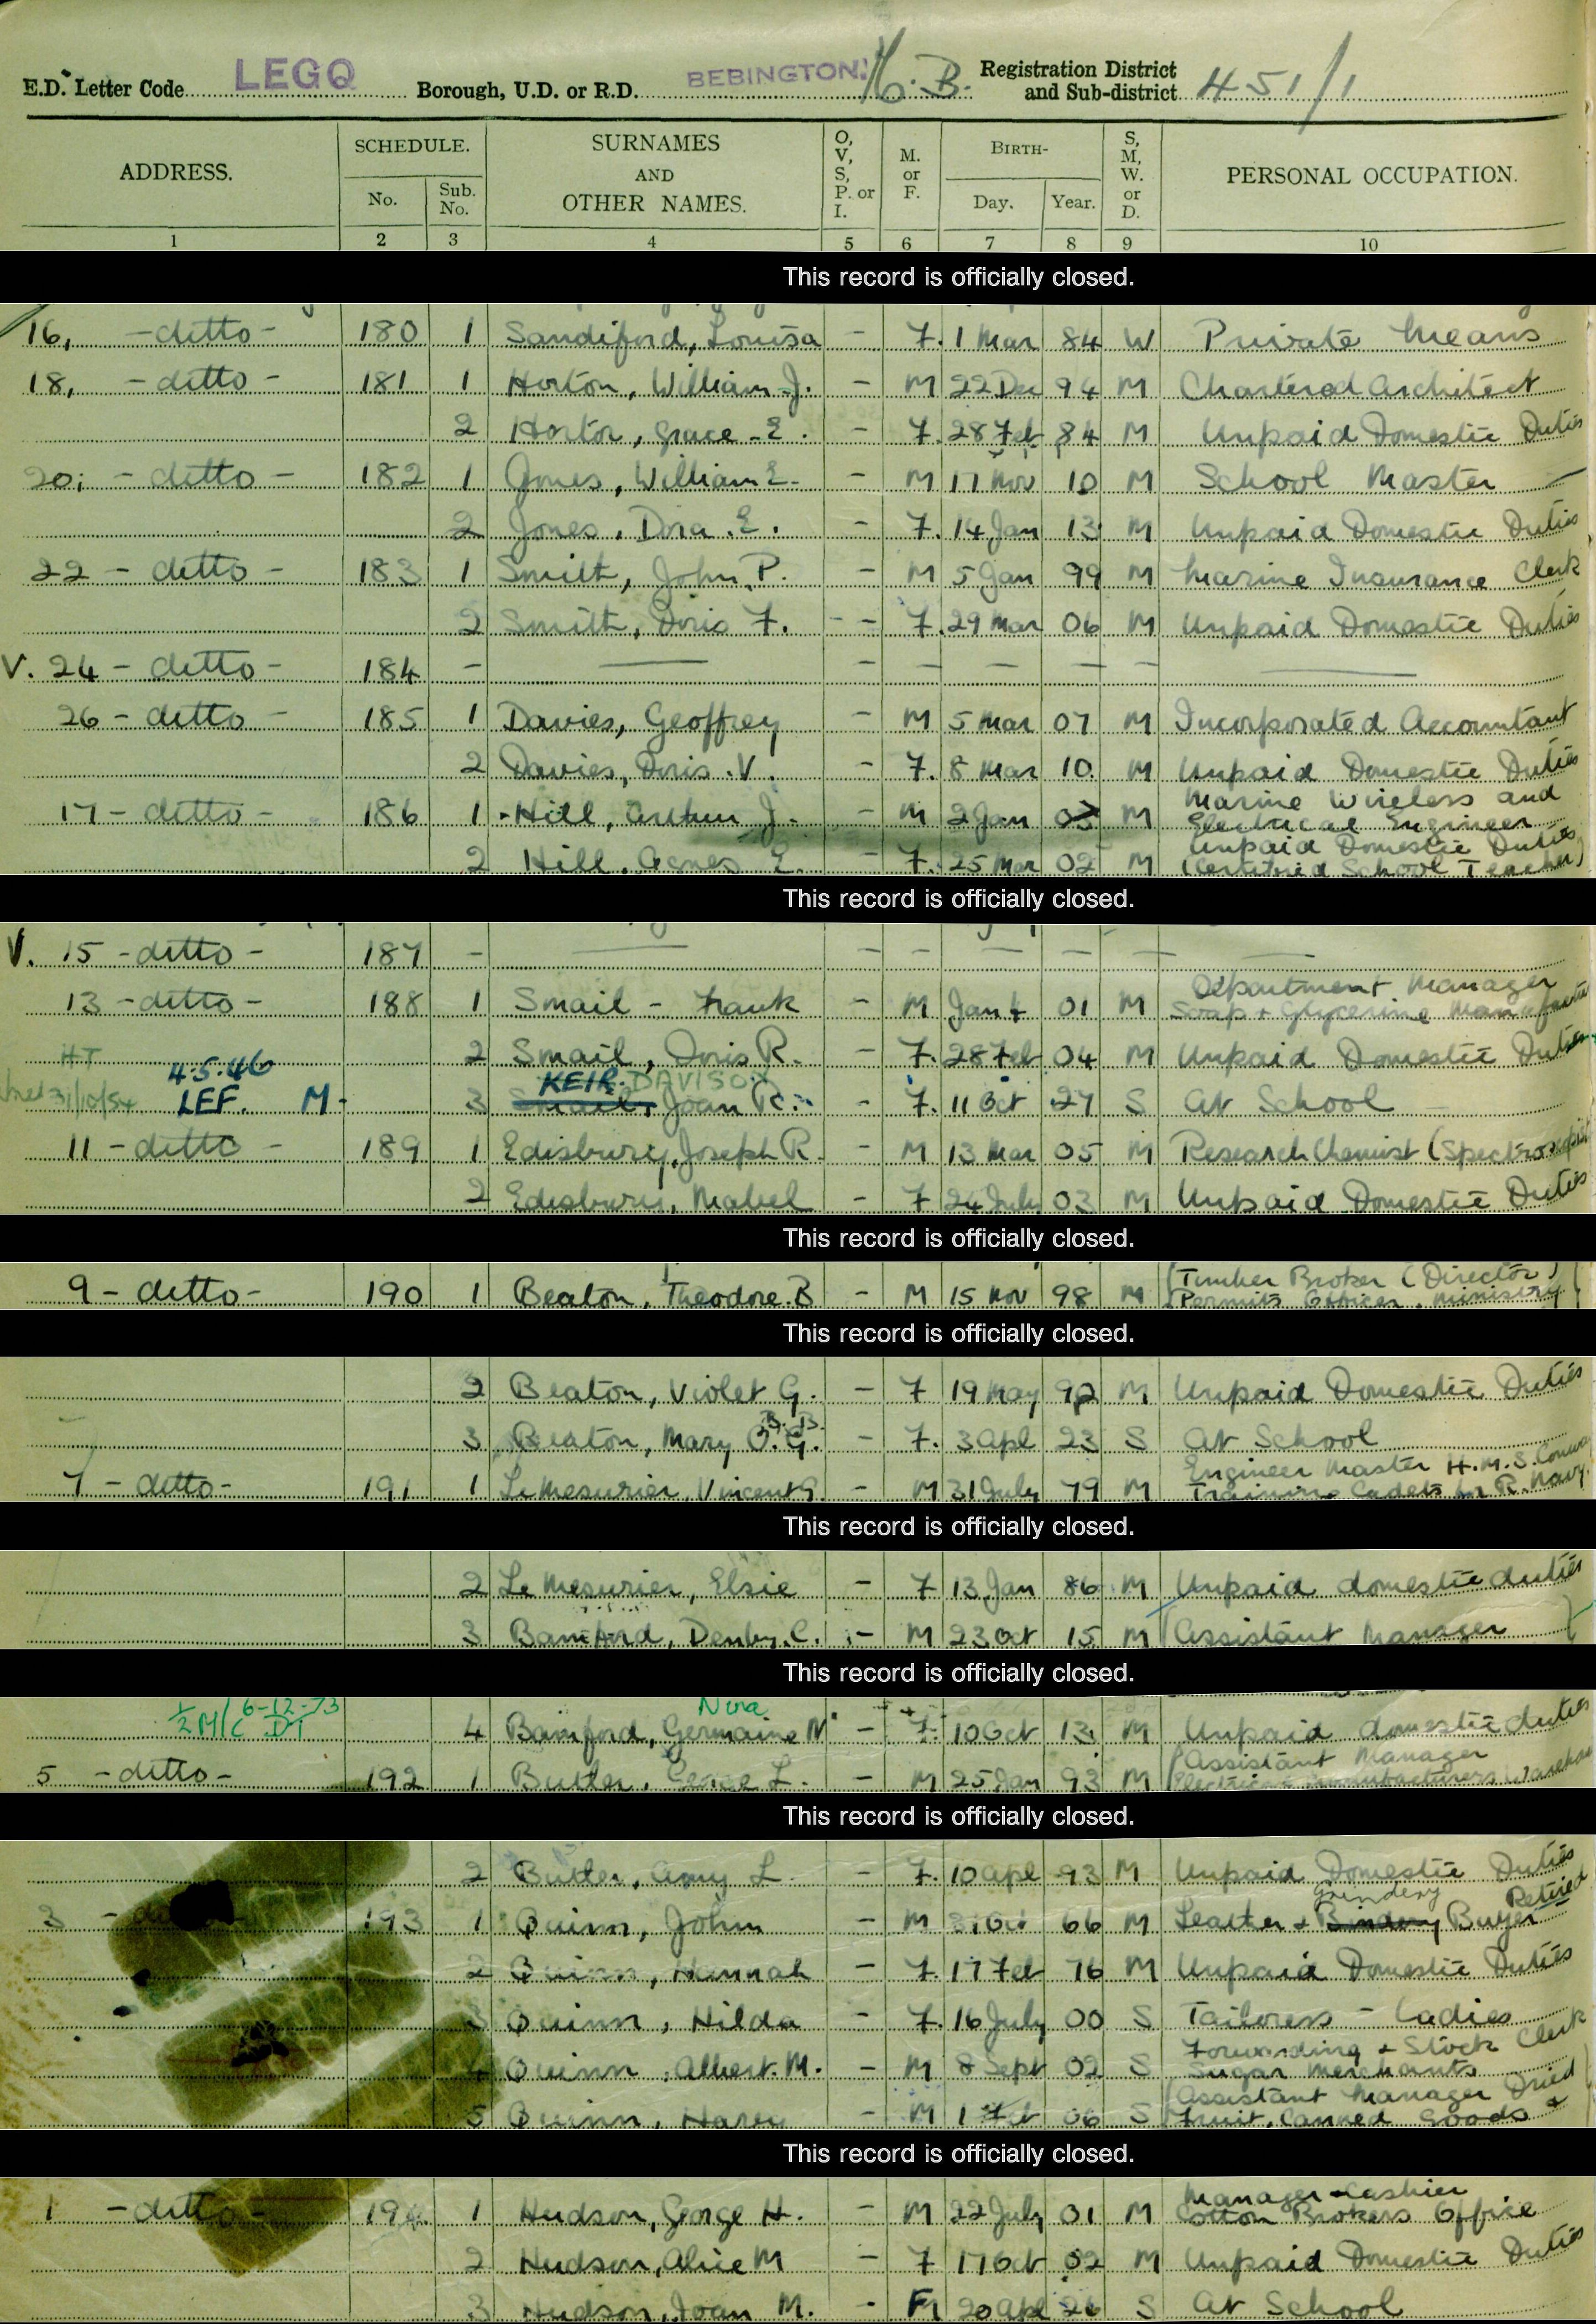 E.D. Letter Code LEGQ Borough, U.D. or R.D. BEBINGTON. M.B. Registration District and Sub-district 451/1
ADDRESS. SCHEDULE. No. Sub. No. SURNAMES AND OTHER NAMES. O, V, S, P. or I. M. or F. BIRTH- Day. Year. S, M, W. or D. PERSONAL OCCUPATION.
1 2 3 4 5 6 7 8 9 10
This record is officially closed.
16, - ditto - 180 1 Sandiford, Louisa - F. 1 Mar 84 W Private Means
18, - ditto - 181 1 Horton, William J. - M 22 Dec 94 M Chartered Architect
2 Horton, Grace E. - F. 28 Feb 84 M Unpaid Domestic Duties
20, - ditto - 182 1 Jones, William E. - M 17 Nov 10 M School Master
2 Jones, Dora E. - F. 14 Jan 13 M Unpaid Domestic Duties
22 - ditto - 183 1 Smith, John P. - M 5 Jan 99 M Marine Insurance Clerk
2 Smith, Doris F. - - F. 29 Mar 06 M Unpaid Domestic Duties
V. 24 - ditto - 184 - — - - - - - —
26 - ditto - 185 1 Davies, Geoffrey - M 5 Mar 07 M Incorporated Accountant
2 Davies, Doris V. - F. 8 Mar 10 M Unpaid Domestic Duties
17 - ditto - 186 1 Hill, Arthur J. - M 2 Jan M Marine Wireless and
Electrical Engineer
2 Hill, Agnes E. - F. 25 Mar 02 M Unpaid Domestic Duties
(Certified School Teacher)
This record is officially closed.
V. 15 - ditto - 187 - — - - - - - —
13 - ditto - 188 1 Smail - Frank - M Jan 4 01 M Department Manager
Soap + Glycerine
2 Smail, Doris R. - F. 28 Feb 04 M Unpaid Domestic Duties
4.5.46 KEIR. DAVISON
31/10/54 LEF. M - 3 Smail, Joan R. - F. 11 Oct 27 S At School
11 - ditto - 189 1 Edisbury, Joseph R. - M 13 Mar 05 M Research Chemist
2 Edisbury, Mabel - F 24 July 03 M Unpaid Domestic Duties
This record is officially closed.
9 - ditto - 190 1 Beaton, Theodore B - M 15 Nov 98 M (Timber Broker (Director)
Permits Officer, Ministry
This record is officially closed.
2 Beaton, Violet G. - F 19 May M Unpaid Domestic Duties
B. B.
3 Beaton, Mary O. G. - F. 3 Apl 23 S At School
7 - ditto - 191 1 Le Mesurier, Vincent - M 31 July 79 M Engineer Master H.M.S. Conway
Training Cadets in R. Navy.
This record is officially closed.
2 Le Mesurier, Elsie - F 13 Jan 86 M Unpaid domestic duties
3 Bamford, Denby C. - M 23 Oct 15 M Assistant Manager
This record is officially closed.
6-12-73 Nora
4 Bamford, Germaine N - F. 10 Oct 13 M Unpaid domestic duties
5 - ditto - 192 1 Butler, L. - M 25 Jan 93 M Assistant Manager
Electrical Manufacturers
This record is officially closed.
2 Butler, Amy L. - F. 10 Apl 93 M Unpaid Domestic Duties
Grindery Retired
3 193 1 Quinn, John - M Oct 66 M Leather + Buyer
2 Quinn, Hannah - F. 17 Feb 76 M Unpaid Domestic Duties
3 Quinn, Hilda - F. 16 July 00 S Tailoress - Ladies
4 Quinn, Albert M. - M 8 Sept 02 S Forwarding + Stock Clerk
Sugar Merchants
5 Quinn, Harry - M 1 Feb 06 S Assistant Manager Dried
Fruit, Canned Goods +
This record is officially closed.
1 - ditto - 194 1 Hudson, George H. - M 22 July 01 M Manager + Cashier
Cotton Brokers Office
2 Hudson, Alice M - F 17 Oct 02 M Unpaid Domestic Duties
3 Hudson, Joan M. - F 20 Apl 26 S At School